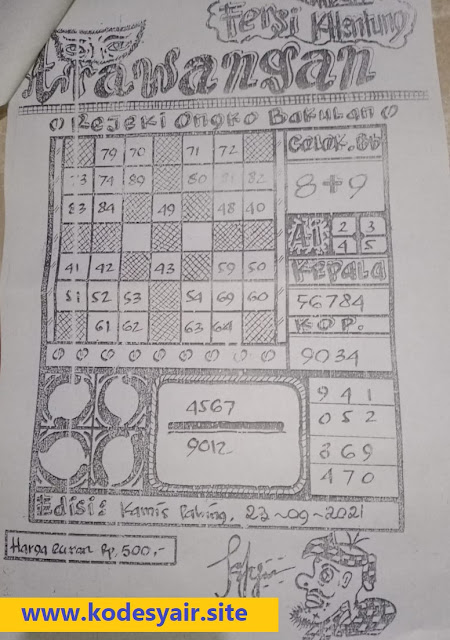 Fersi Kalentung
trawangan
Rejeki Ongko Bakulan
79 70 71 72
73 74 89 80 81 82
83 84 49 48 40
41 42 43 59 50
51 52 53 54 69 60
61 62 63 64
Colok.Bb
8+9
Ai
2 3
4 5
Kepala
56784
KOP.
9034
4567
9012
941
052
369
470
Edisi: Kamis Pahing, 23-09-2021
Harga Euran Rp, 500,-
www.kodesyair.site